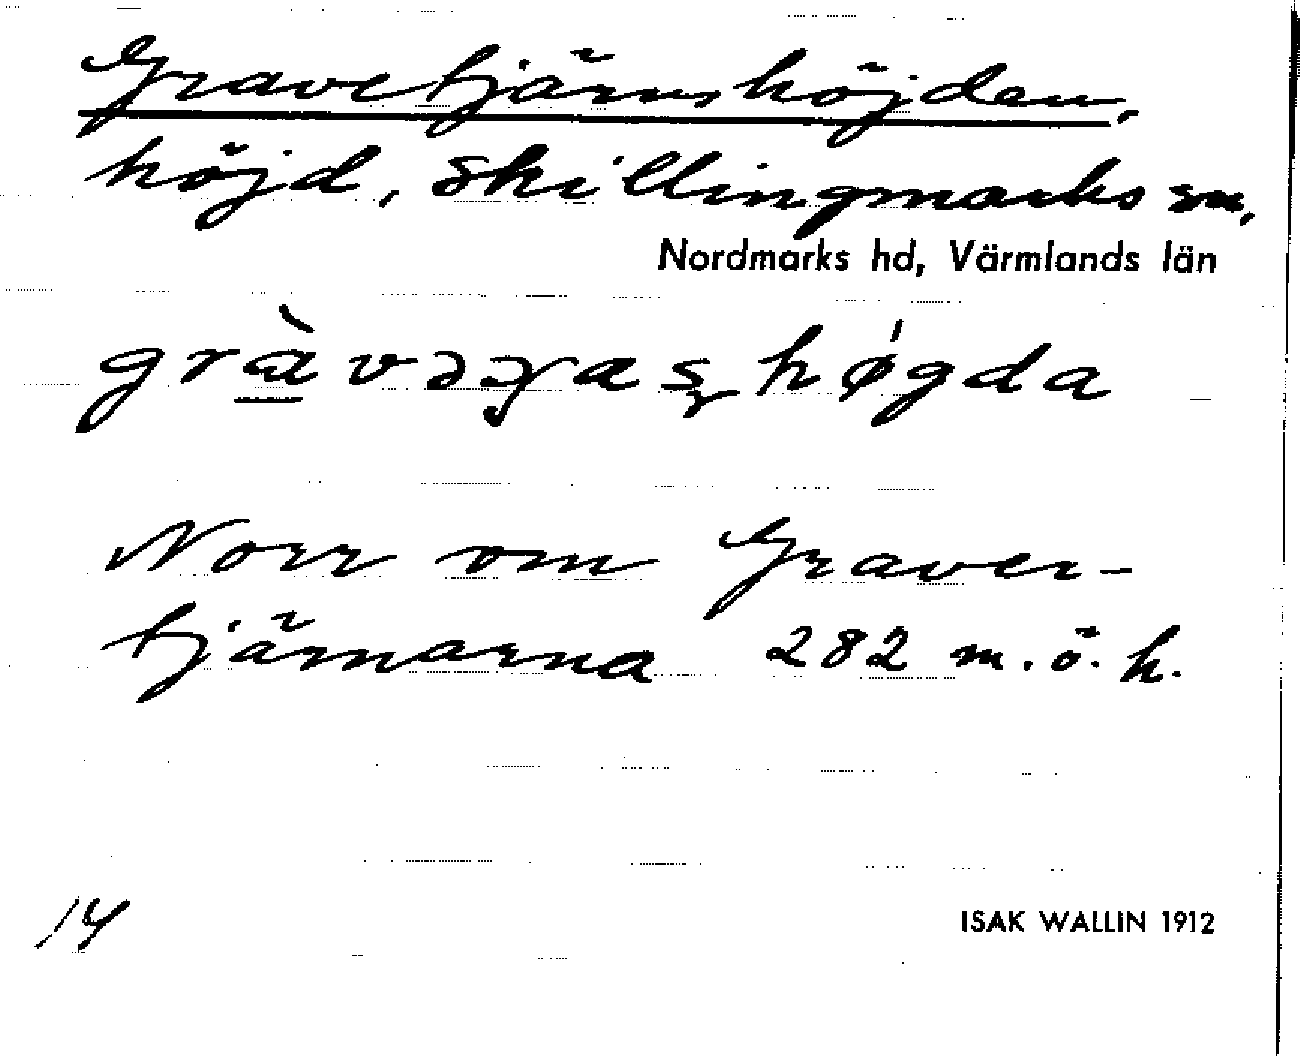 Gravetjärnshöjden,
höjd, Skillingmarks sn,
Nordmarks hd, Värmlands län
høgda
Norr om Graver-
tjärnarna 282 m.ö.h.
14
ISAK WALLIN 1912